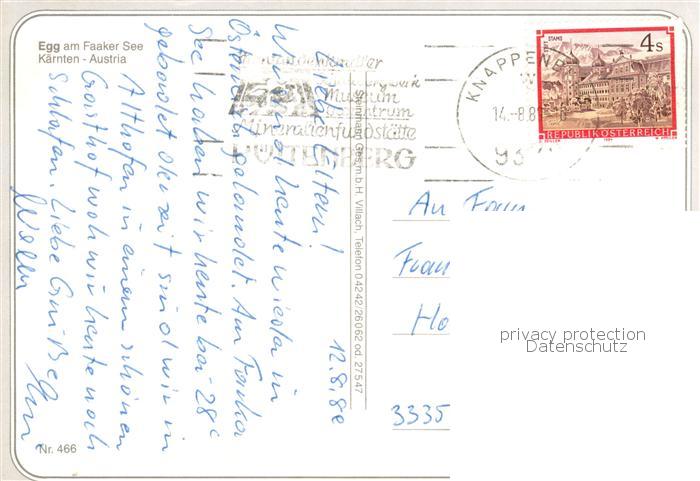 Egg am Faaker See
Kärnten - Austria
Liebe Eltern!
Wir sind heute wieder in
Österreich gelandet. Am Faaker
See haben wir heute bei 28°
gebadet. Derzeit sind wir in
Althofen in einem schönen
Gasthof wo wir heute noch
schlafen. Liebe Grüße
12.8.89
Nr. 466
Steinhart Ges.m.b.H. Villach, Telefon 04242/26062 od. 27547
Museum
Mineralienfundstätte
HÜTTENBERG
KNAPPENB
14.-8.89
93
STIFT STAMS
4s
REPUBLIK ÖSTERREICH
An Fam.
Fran
Ho
3335
privacy protection
Datenschutz